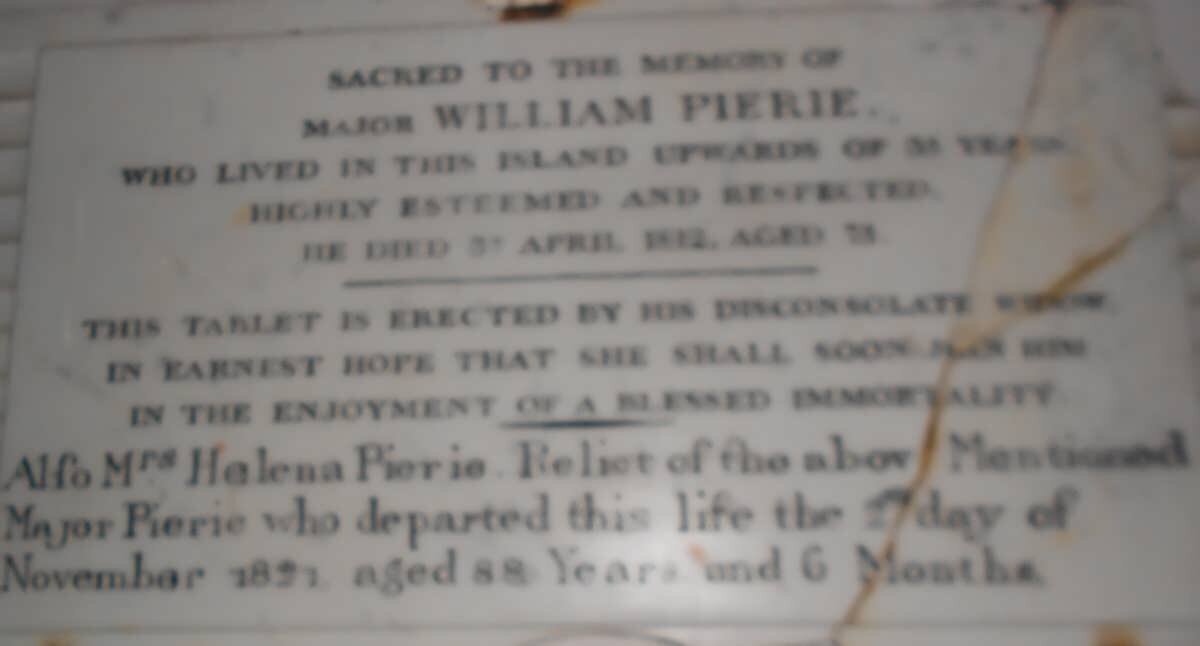 SACRED TO THE MEMORY OF
MAJOR WILLIAM PIERIE.
WHO LIVED IN THIS ISLAND UPWARDS OF YEARS
HIGHLY ESTEEMED AND RESPECTED.
HE DIED APRIL 1812, AGED
THIS TABLET IS ERECTED BY HIS DISCONSOLATE WIDOW,
IN EARNEST HOPE THAT SHE SHALL SOON JOIN HIM
IN THE ENJOYMENT OF A BLESSED IMMORTALITY.
Alſo Mrs Helena Pierie. Relict of the above Mentioned
Major Pierie who departed this life the day of
November aged 88 Years and 6 Months.